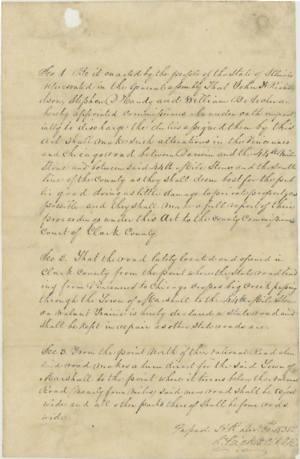 Sec. 1 Be it enacted by the people of the State of Illinois
represented in the General assembly That John
Stephen Handy and William B. Archer are
hereby appointed commissioners who under oath
to discharge the duties assigned them by this
Act Shall make such alterations in the Vincennes
and Chicago road between Darwin and the 44th Mile
Stone and between said 44th Mile Stone and the South
line of the County as they shall deem best for the
good doing as little damage to private property as
possible and they shall make a full report of their
proceedings under this Act to the County Commissioners
Court of Clark County.
Sec 2. That the road lately located and opened in
Clark County from the point where the State road lead
ing from Vincennes to Chicago crosses big creek passing
through the Town of Marshall to the 44th Mile Stone
on Walnut Prairie is hereby declared a State road and
shall be kept in repair as other State roads are.
Sec 3. From the point North of the national Road where
said road makes a turn direct for the Said Town of
Marshall to the point where it turns below the same
about four miles said new road shall be
wide and all other parts thereof Shall be four rods
wide.
Passed H.R.